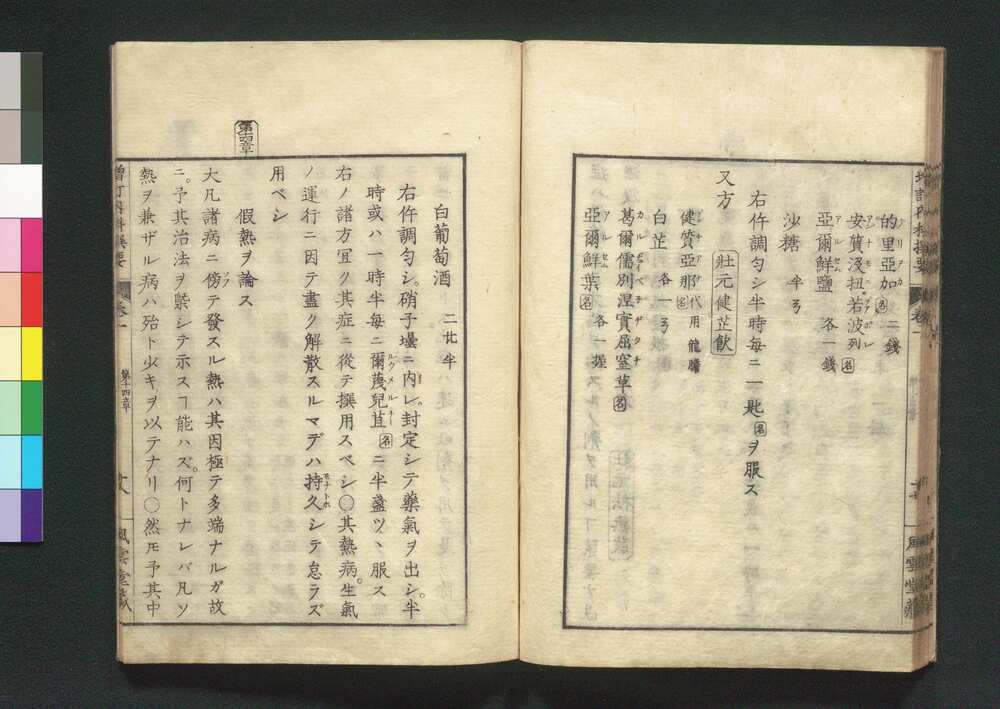 的里亞加 名 二錢
テリアカ
安質沒扭 若波列 名
アンチモニ ヂアポレ
亞爾鮮鹽 各一錢
アルセム
沙糖 半ヲ
右件調勻シ半時每ニ一匙名ヲ服ス
又方 壯元健芷飲
健質亞那 名 代用龍膽
ゲンチアナ
白芷 各一ヲ
葛爾儒別涅實屈窒草 名
カルヅイベネヂクテ
亞爾鮮葉 名 各一握
アルセム
增訂內科撰要 卷一
風雲堂藏
白葡萄酒 二廿半
右件調勻シ。硝子壜ニ內レ封定シテ藥氣ヲ出シ。半
時或ハ一時半每ニ爾蔑兒苴名ニ半盞ツヽ服ス
右ノ諸方宜ク其症ニ從テ撰用スベシ〇其熱病。生氣
ノ運行ニ因テ盡ク解散スルマデハ持久シテ怠ラズ
用ベシ
第十四章
假熱ヲ論ス
大凡諸病ニ傍テ發スル熱ハ其因極テ多端ナルガ故
ニ。予其治法ヲ槩シテ示スヿ能ハズ。何トナレバ凡ソ
熱ヲ兼ザル病ハ殆ト少キヲ以テナリ〇然圧予其中
增訂內科撰要 卷一 第十四章 風雲堂藏